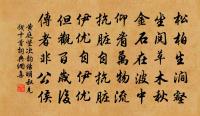 松柏生澗壑
坐閱草木秋
金石在波中
仰看萬物流
抗髒自抗髒
伊優自伊優
但觀百歲後
傳者非公侯
黃庭堅次韵楊明叔見
餞十首詞典網書